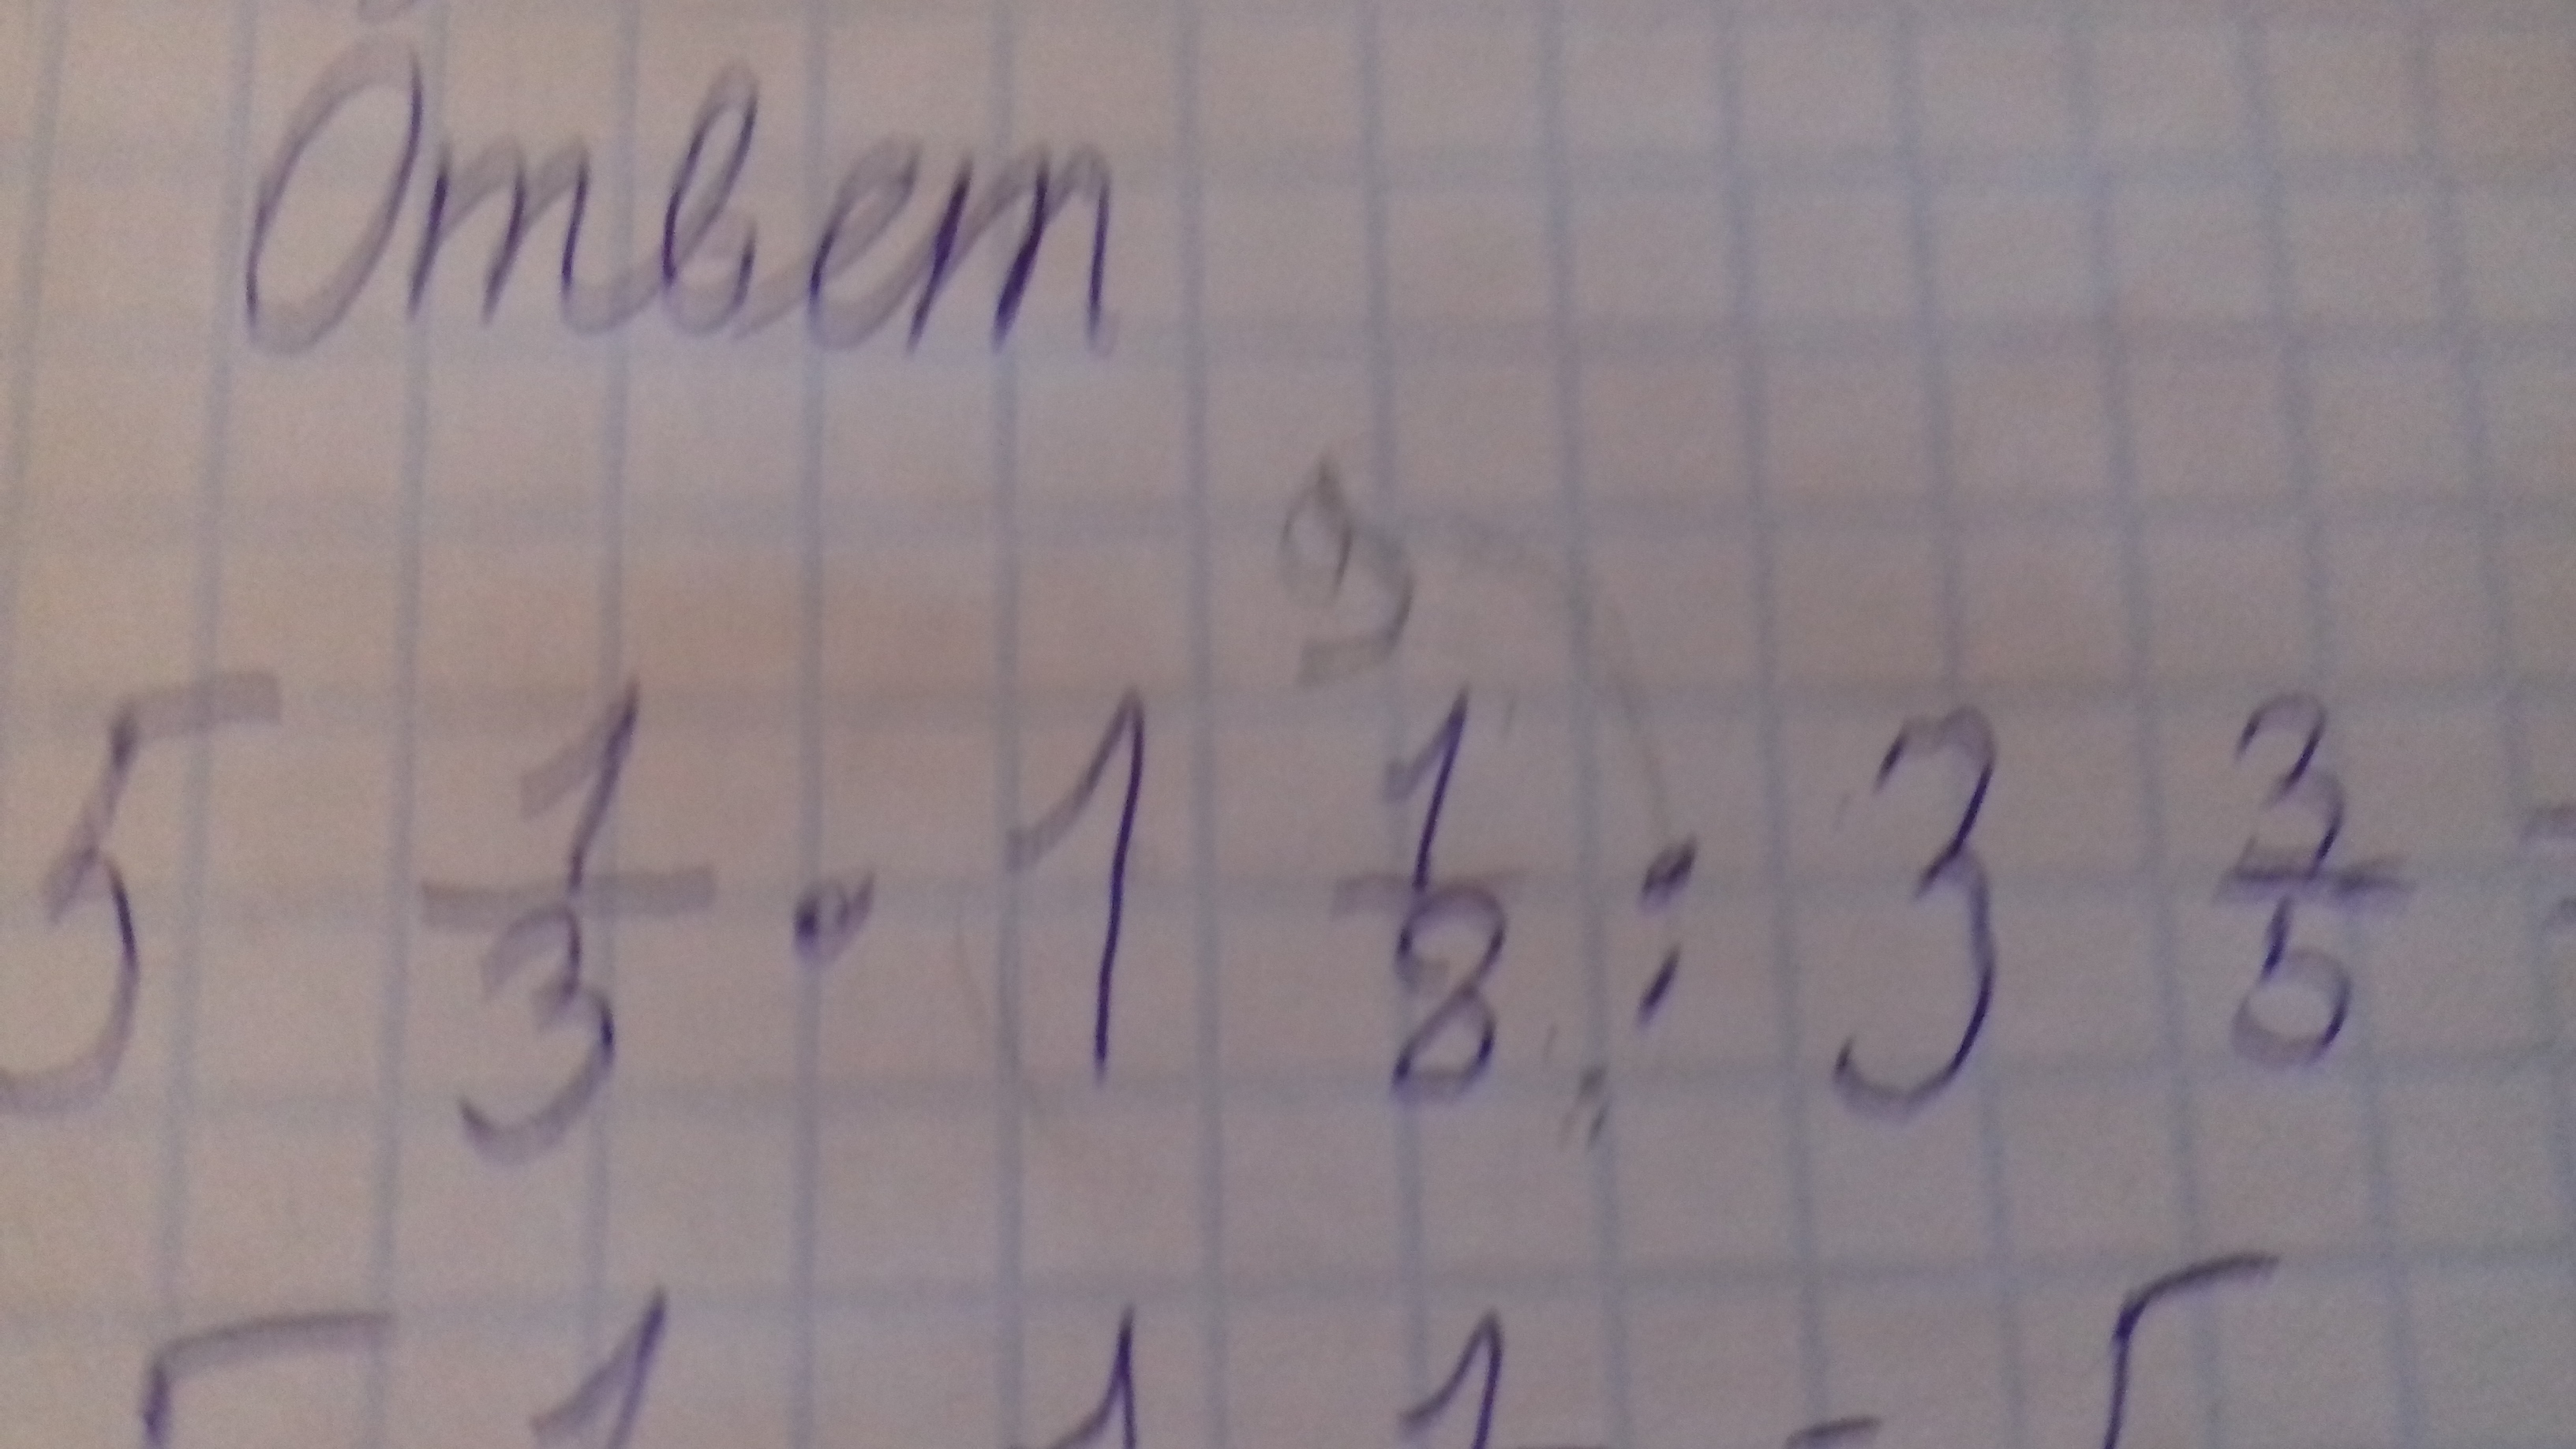 Ответ
5 1/3 · 1 1/8 : 3 3/5 =